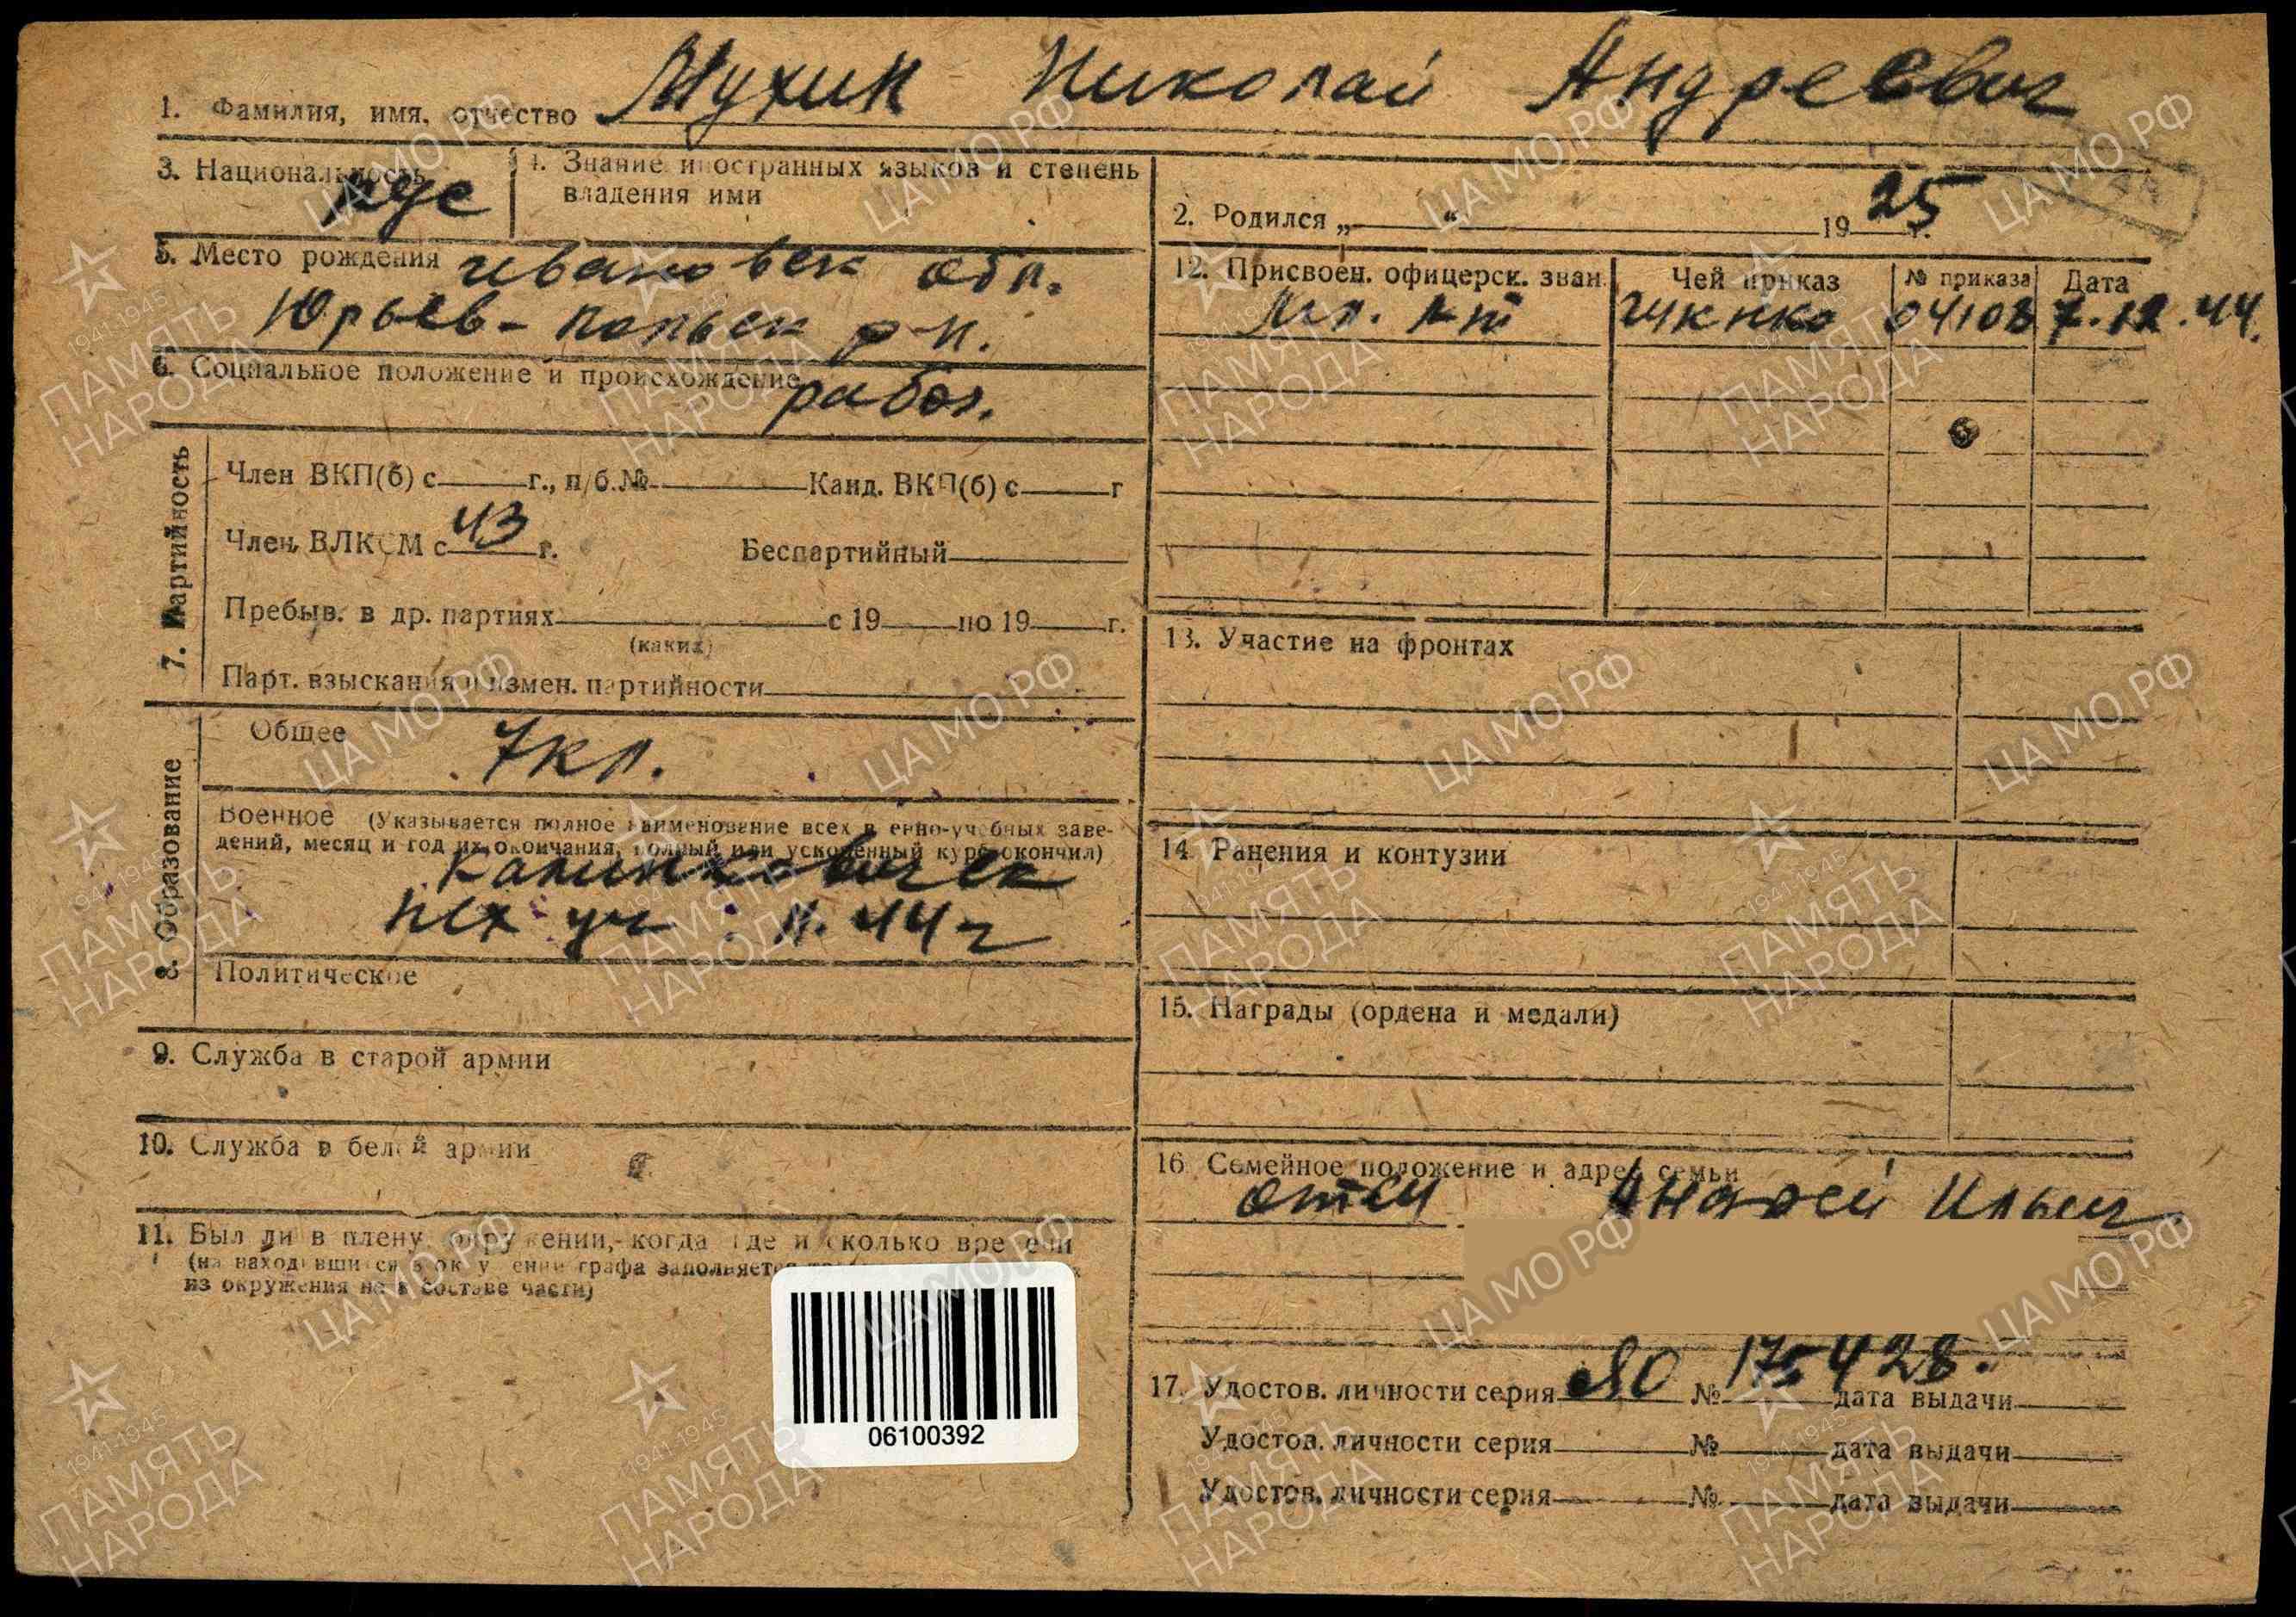 1. Фамилия, имя, отчество Мухин Николай Андреевич
3. Национальность рус
4. Знание иностранных языков и степень
владения ими
2. Родился „ “ 19 25 г.
5. Место рождения Ивановск обл.
Юрьев-Польск р-н.
6. Социальное положение и происхождение рабоч.
7. Партийность
Член ВКП(б) с г., п/б.№ Канд. ВКП(б) с г
Член ВЛКСМ с 43 г. Беспартийный
Пребыв. в др. партиях с 19 по 19 г.
(каких)
Парт. взыскания и измен. партийности
8. Образование
Общее 7 кл.
Военное (Указывается полное наименование всех военно-учебных заве-
дений, месяц и год их окончания, полный или ускоренный курс окончил)
Калинковичск
пех уч 11.44 г
Политическое
9. Служба в старой армии
10. Служба в белой армии
11. Был ли в плену, окружении,- когда где и сколько времени
(на находившихся в окружении графа заполняется
из окружения не в составе части)
06100392
12. Присвоен. офицерск. зван. Чей приказ № приказа Дата
Мл. л-т ГУК НКО 04108 7.12.44.
13. Участие на фронтах
14. Ранения и контузии
15. Награды (ордена и медали)
16. Семейное положение и адрес семьи
отец Андрей Ильич
17. Удостов. личности серия ЯО № 175428. дата выдачи
Удостов. личности серия № дата выдачи
Удостов. личности серия № дата выдачи
ЦА МО РФ
1941-1945
ПАМЯТЬ
НАРОДА